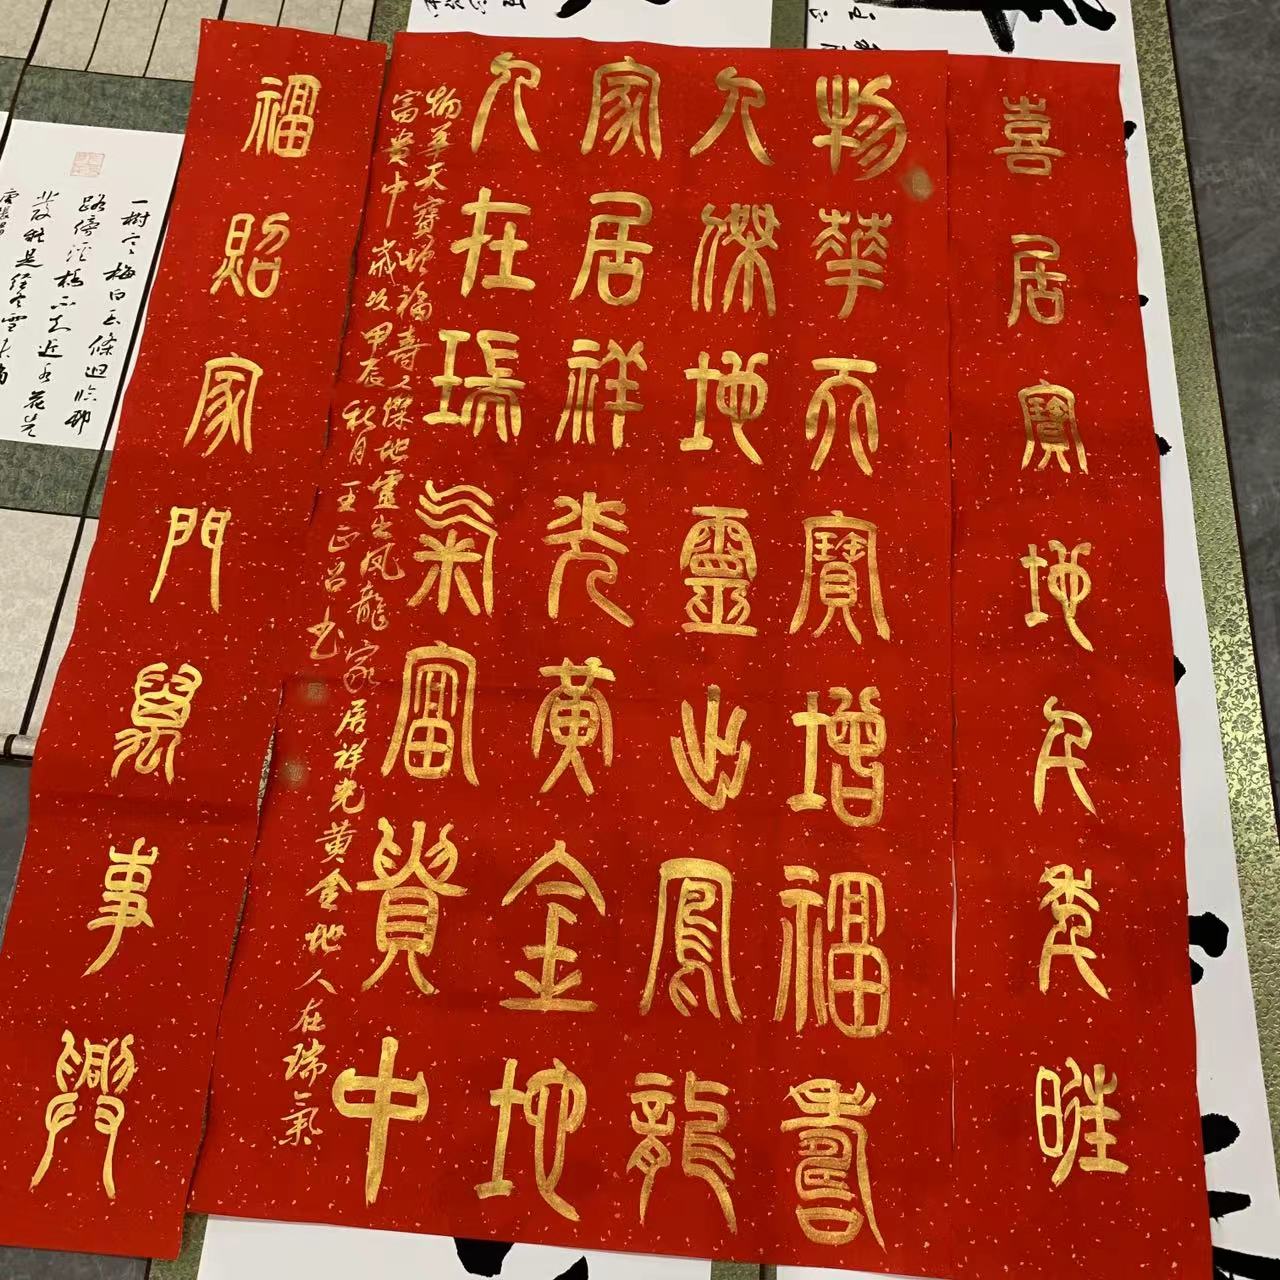 喜居寶地千年旺
物華天寶增福壽
人傑地靈出鳳龍
家居祥光黃金地
人在瑞氣富貴中
物華天寶增福壽人傑地靈出凤龍家居祥光黃金地人在瑞氣
富貴中歲次甲辰秋月王正呂书
福照家門萬事興
一樹寒梅白玉條迴臨邨
路傍溪橋不知近水花先
發疑是經冬雪未銷